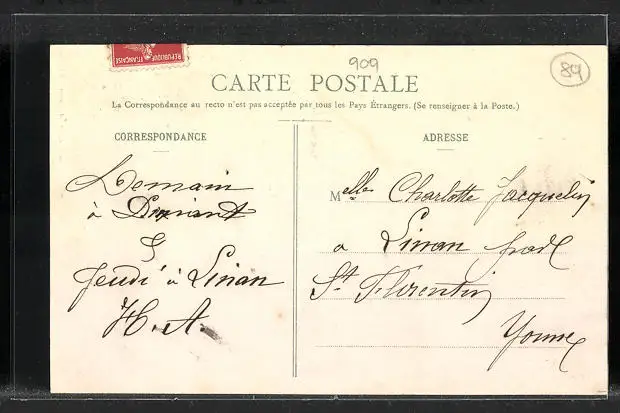 REPUBLIQUE
FRANÇAISE
909
84
CARTE POSTALE
La Correspondance au recto n'est pas acceptée par tous les Pays Étrangers. (Se renseigner à la Poste.)
CORRESPONDANCE
Demain
à
&
Jeudi à Linan
H. A.
ADRESSE
Melle Charlotte Jacquelin
a Linan
St Florentin
Yonne